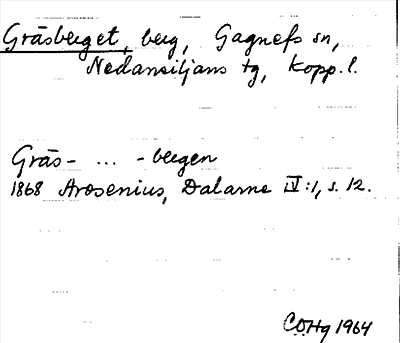 Gräsberget, berg, Gagnefs sn,
Nedansiljans tg, Kopp. l.
Gräs- ... -bergen
1868 Arosenius, Dalarne IV:1, s. 12.
CÖHg 1964